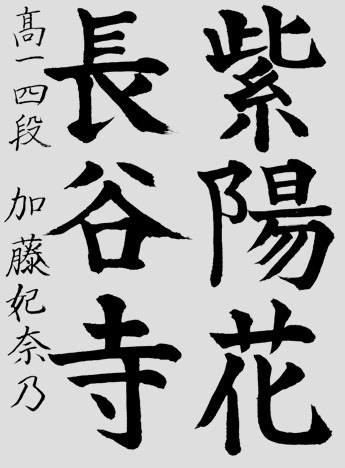 紫陽花
長谷寺
高一四段 加藤妃奈乃